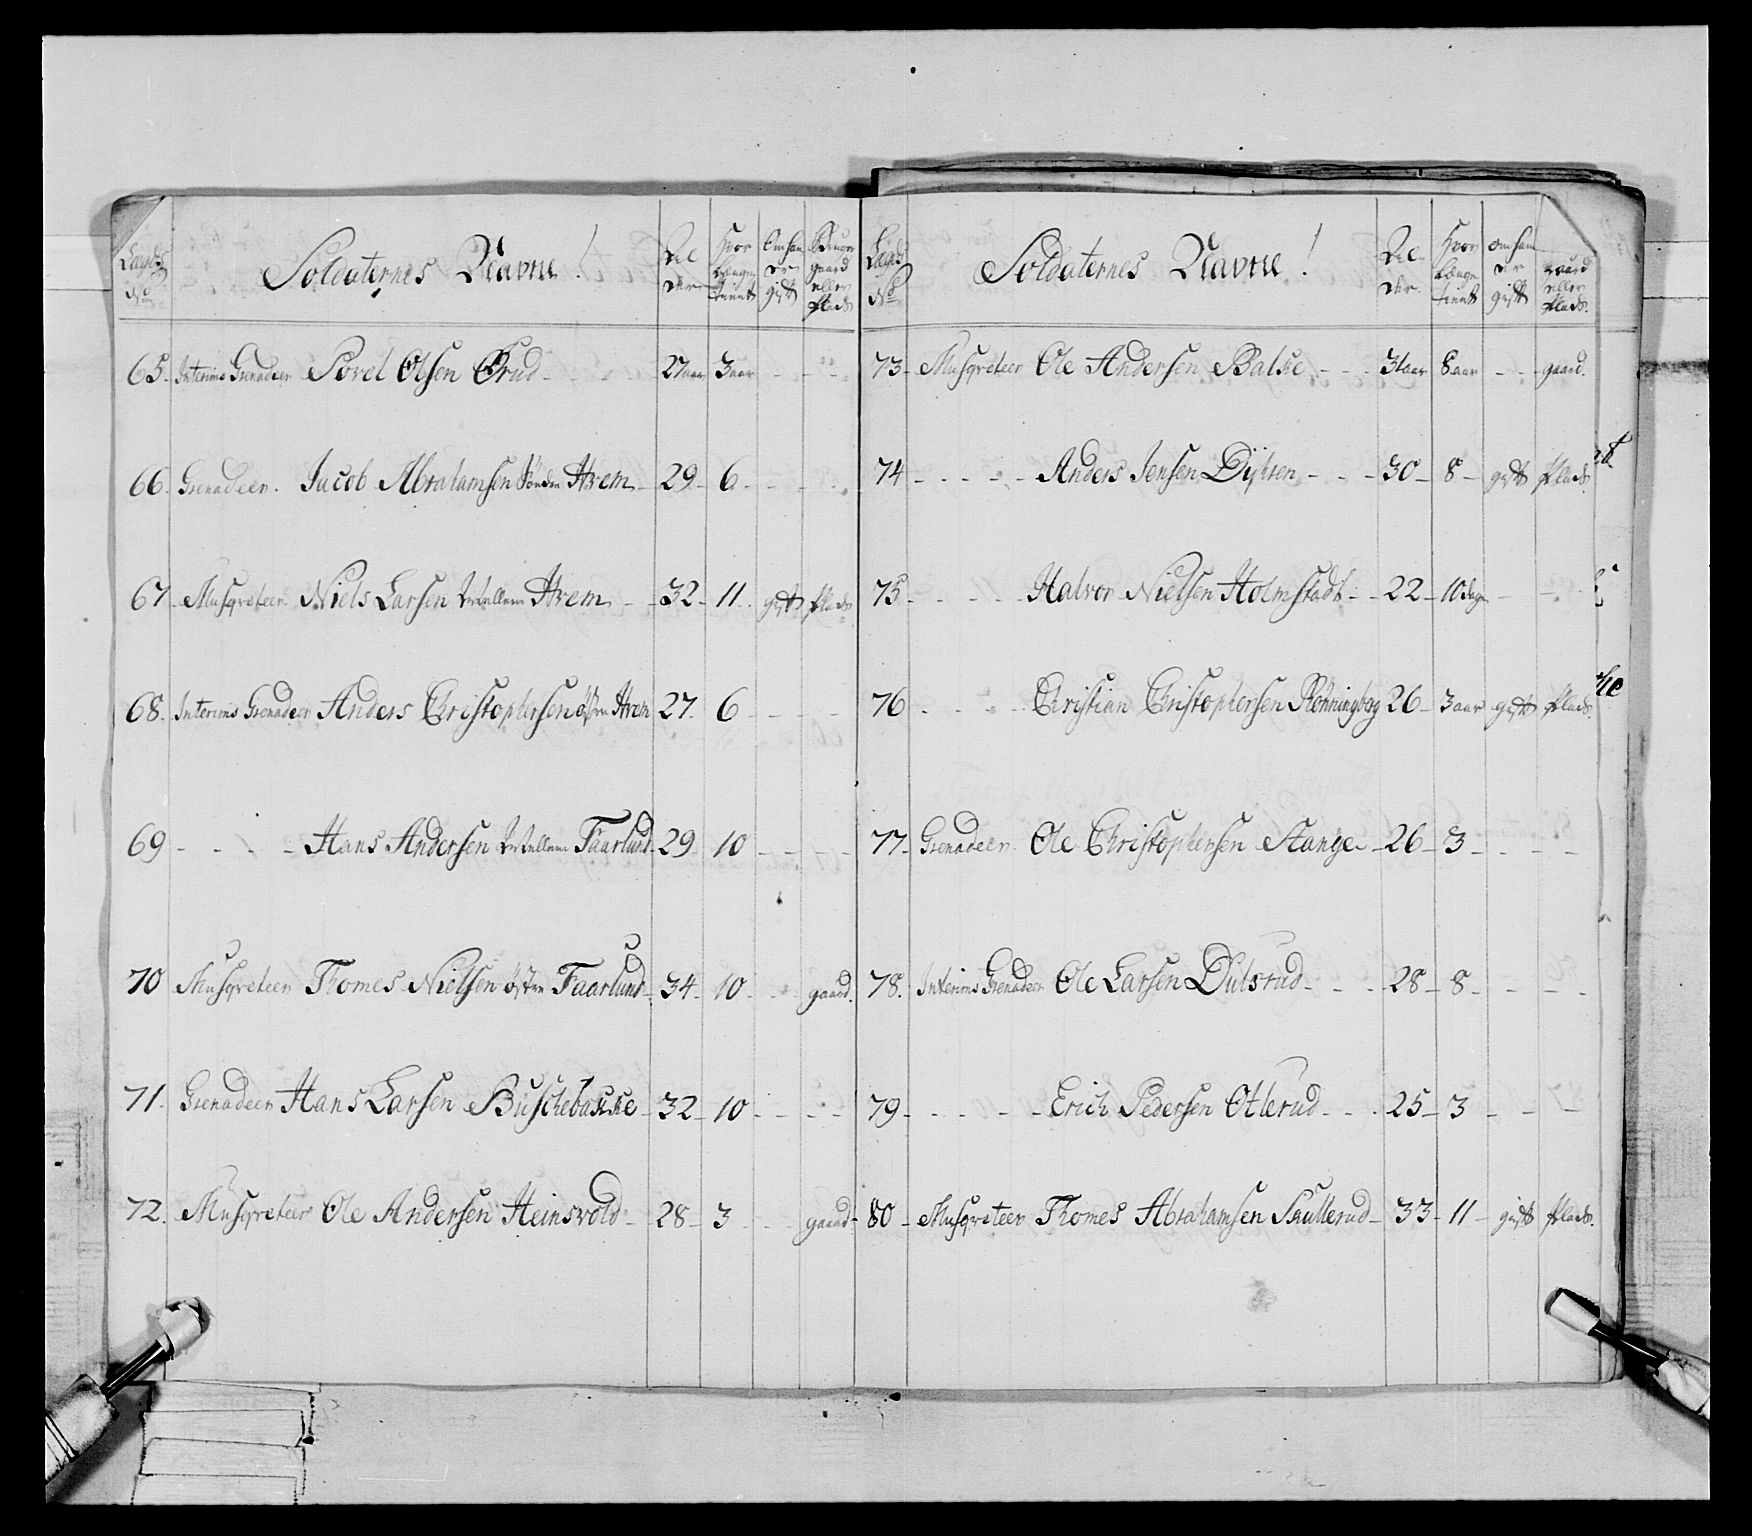 Lægds No Soldaternes Navne! Al- der Hvor Længe tient Om han er gift Bruger gaard eller Plads
65. Interims Grenadeer Povel Olsen Grud - - - 27 aar 3 aar - - -
66. Grenadeer. Jacob Abrahamsen Sønder Hrem - 29 - 6 - - - -
67. Musqveteer Niels Larsen Mellem Hrem - - 32 - 11. gift Plads
68. Interims Grenadeer Anders Christophersen øster Hrem 27. 6 - - -
69 - - - - Hans Andersen Mellem Faarlund - 29 - 10 - - - -
70 Musqveteer Thomes Nielsen øster Faarlund. 34. 10 - - gaard.
71. Grenadeer Hans Larsen Buschebacke - 32 - 10 - - - -
72. Musqveteer Ole Andersen Heinsvold - 28 - 3 - - gaard -
Lægds No Soldaternes Navne! Al- der. Hvor Længe tient om han er gift gaard eller Plads.
73 - Musqveteer Ole Andersen Balke - - - 31 aar 8 aar - - - gaard.
74 - - - - - Anders Jensen Dystren - - - 30 - 8 - gift Plads
75 - - - - Halvor Nielsen Holmstadt - - 22 - 10 dage - - -
76 - - - - Christian Christophersen Rønningberg 26 - 3 aar gift Plads.
77 - Grenadeer Ole Christophersen Stange - 26 - 3 - - - -
78. Interims Grenadeer Ole Larsen Dulsrud - - - 28 - 8 - - - -
79 - - - - - Erich Pedersen Otlerud - - - 25 - 3 - - -
80 - Musqveteer Thomes Abrahamsen Skullerud - 33 - 11 - gift Plads.